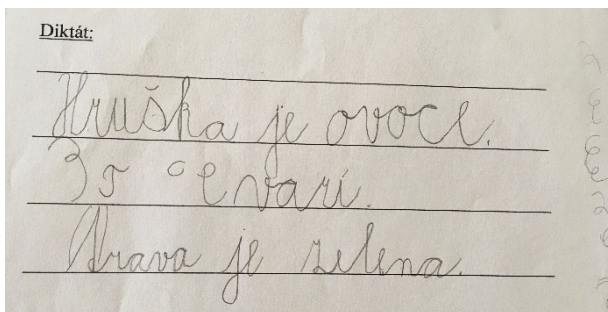 Diktát:
Hruška je ovoce.
varí.
Trava je zelena.